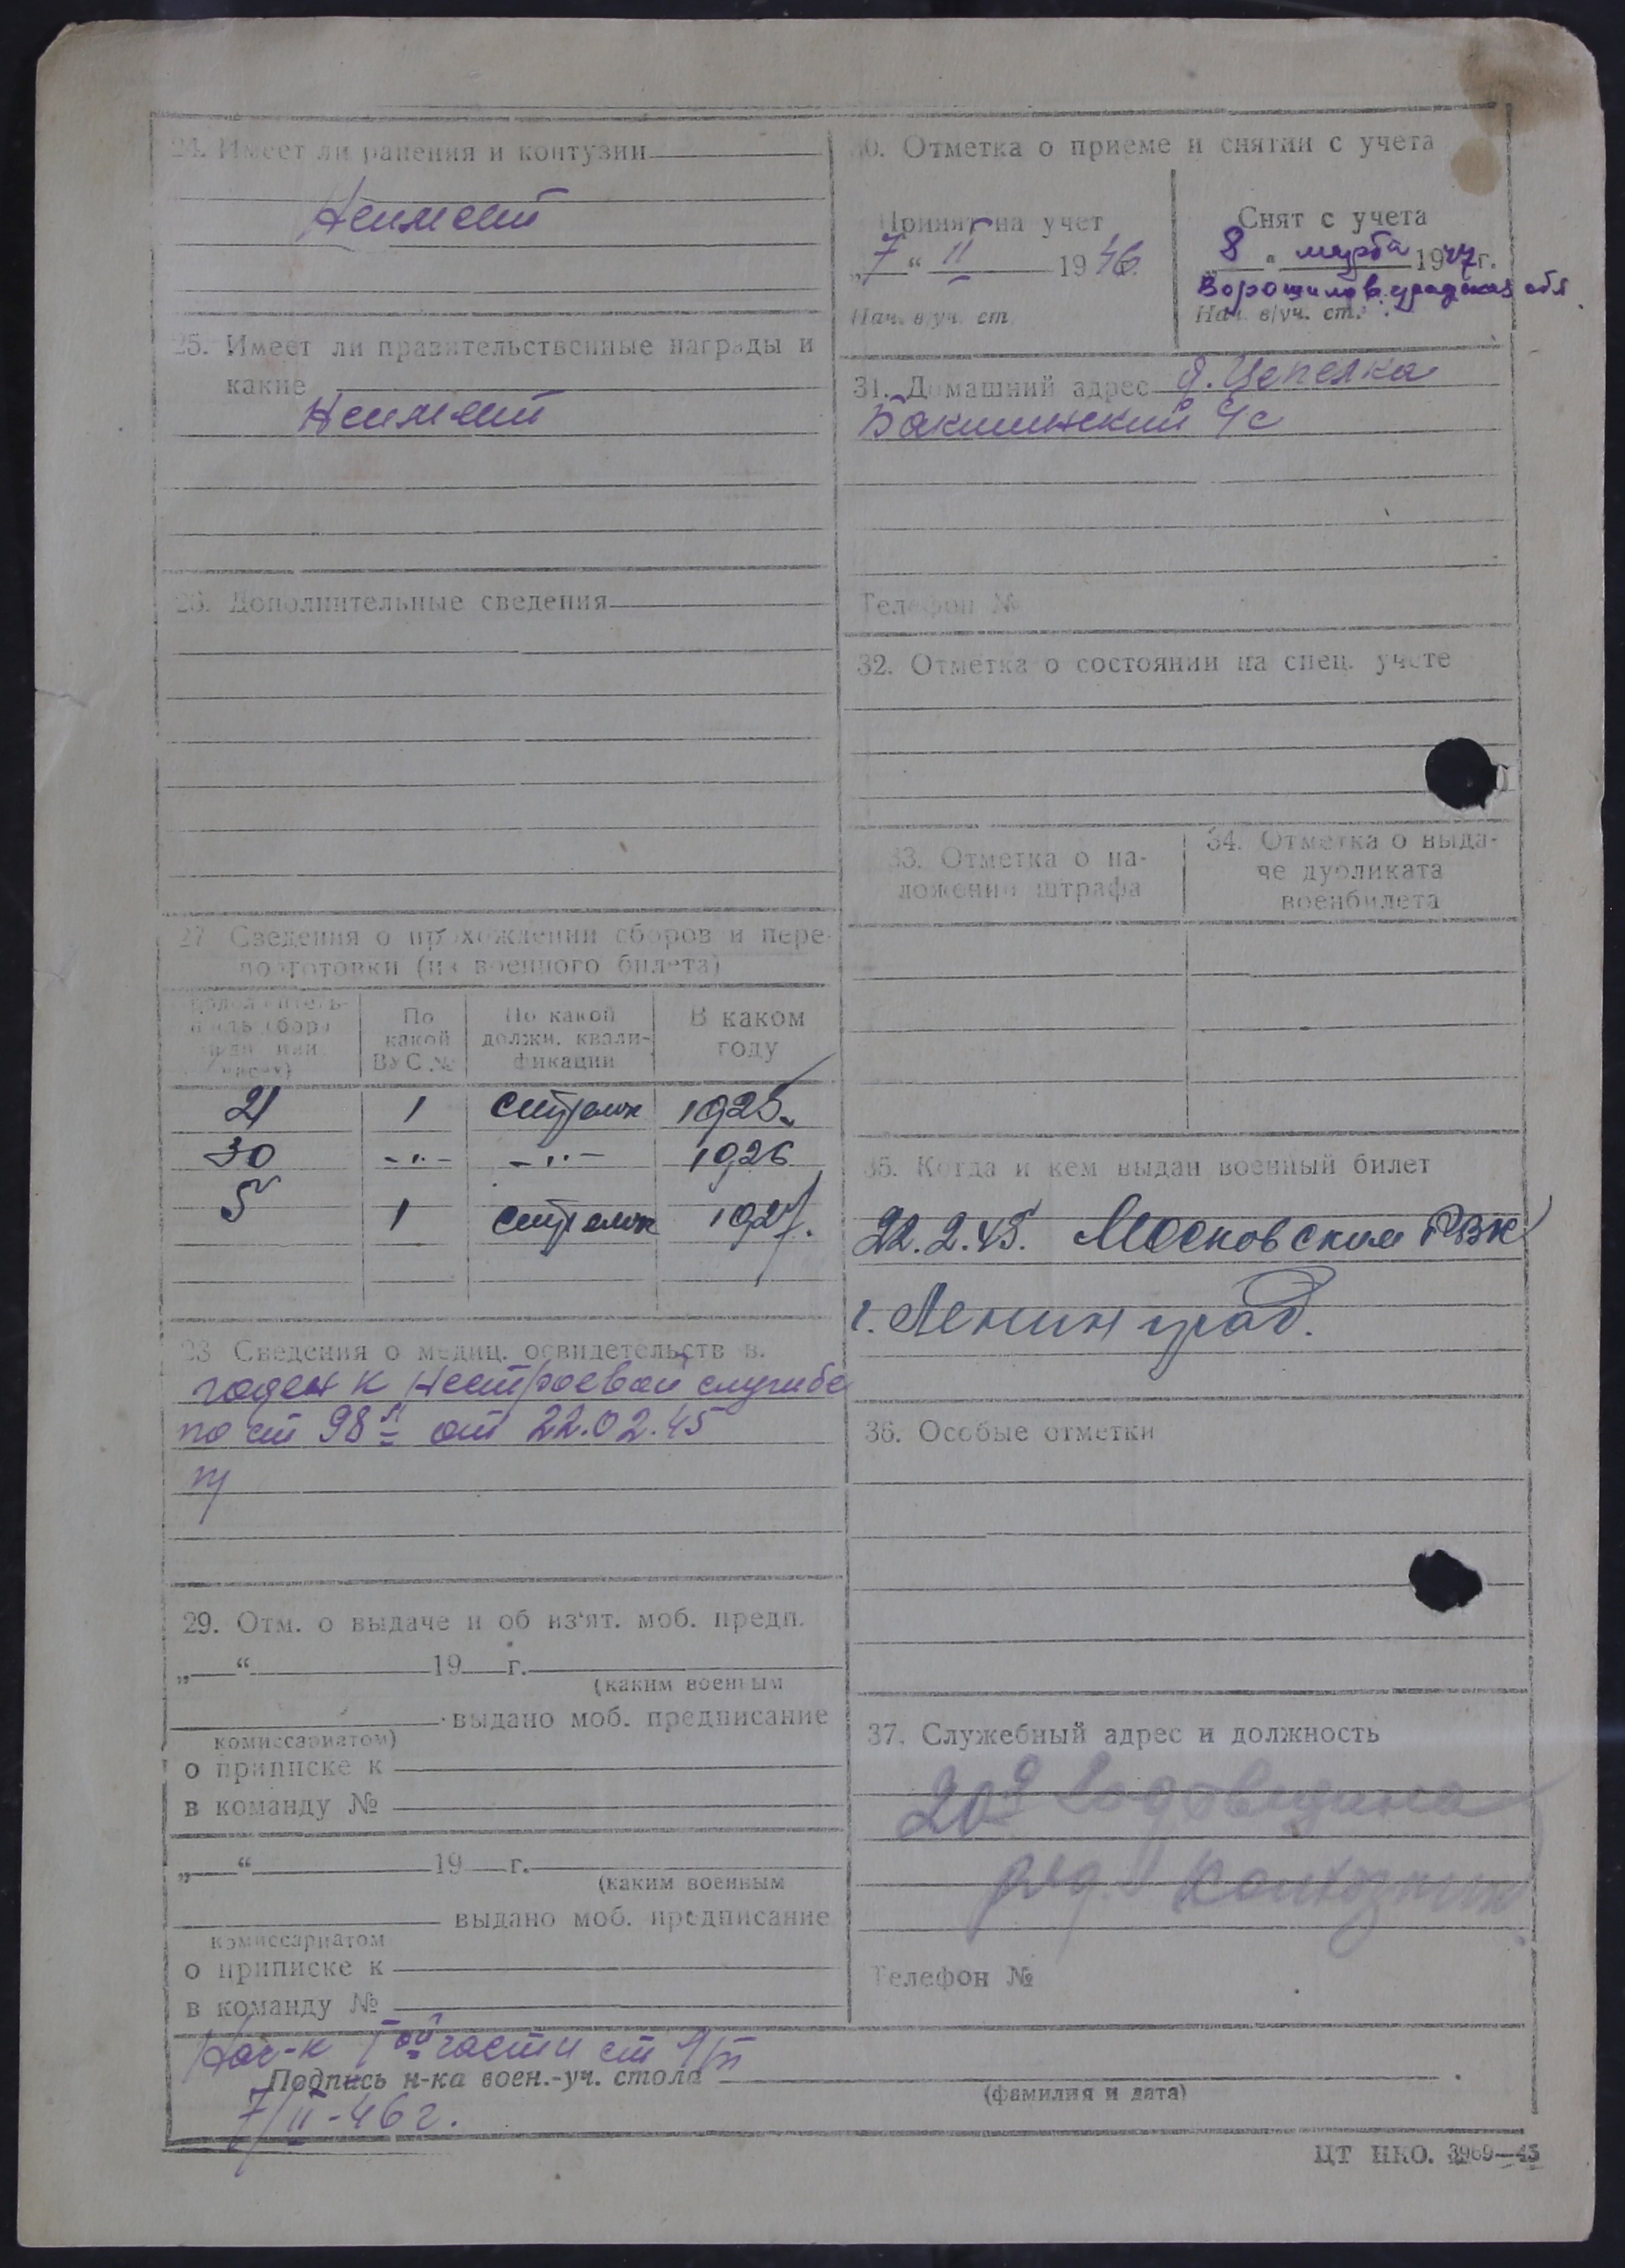 24. Имеет ли ранения и контузии
Неимеет
25. Имеет ли правительственные награды и
какие
Неимеет
26. Дополнительные сведения
27. Сведения о прохождении сборов и пере-
подготовки (из военного билета)
По какой ВУС №
По какой должн. квали-фикации
В каком году
21 1 стрелок 1925.
30 -"- -"- 1926
5 1 стрелок 1927.
Сведения о медиц. освидетельств в.
годен к нестроевой службе
по ст 98 от 22.02.45
29. Отм. о выдаче и об из'ят. моб. предп.
„ “ 19 г.
(каким военным
выдано моб. предписание
комиссариатом)
о приписке к
в команду №
„ “ 19 г.
(каким военным
выдано моб. предписание
комиссариатом
о приписке к
в команду №
30. Отметка о приеме и снятии с учета
Принят на учет
„7“ II 1946.
Нач. в/уч. ст.
Снят с учета
8 марта 1947г.
Ворошиловградская обл.
Нач. в/уч. ст.
31. Домашний адрес д.
Бакшинский с/с
Телефон №
32. Отметка о состоянии на спец. учете
33. Отметка о на-
ложении штрафа
34. Отметка о выда-
че дубликата
военбилета
35. Когда и кем выдан военный билет
22.2.45. Московским РВК
г. Ленинград.
36. Особые отметки
37. Служебный адрес и должность
колхозник
Телефон №
Нач-к части ст
Подпись н-ка воен.-уч. стола
(фамилия и дата)
7/II-46 г.
ЦТ НКО. 3969—45